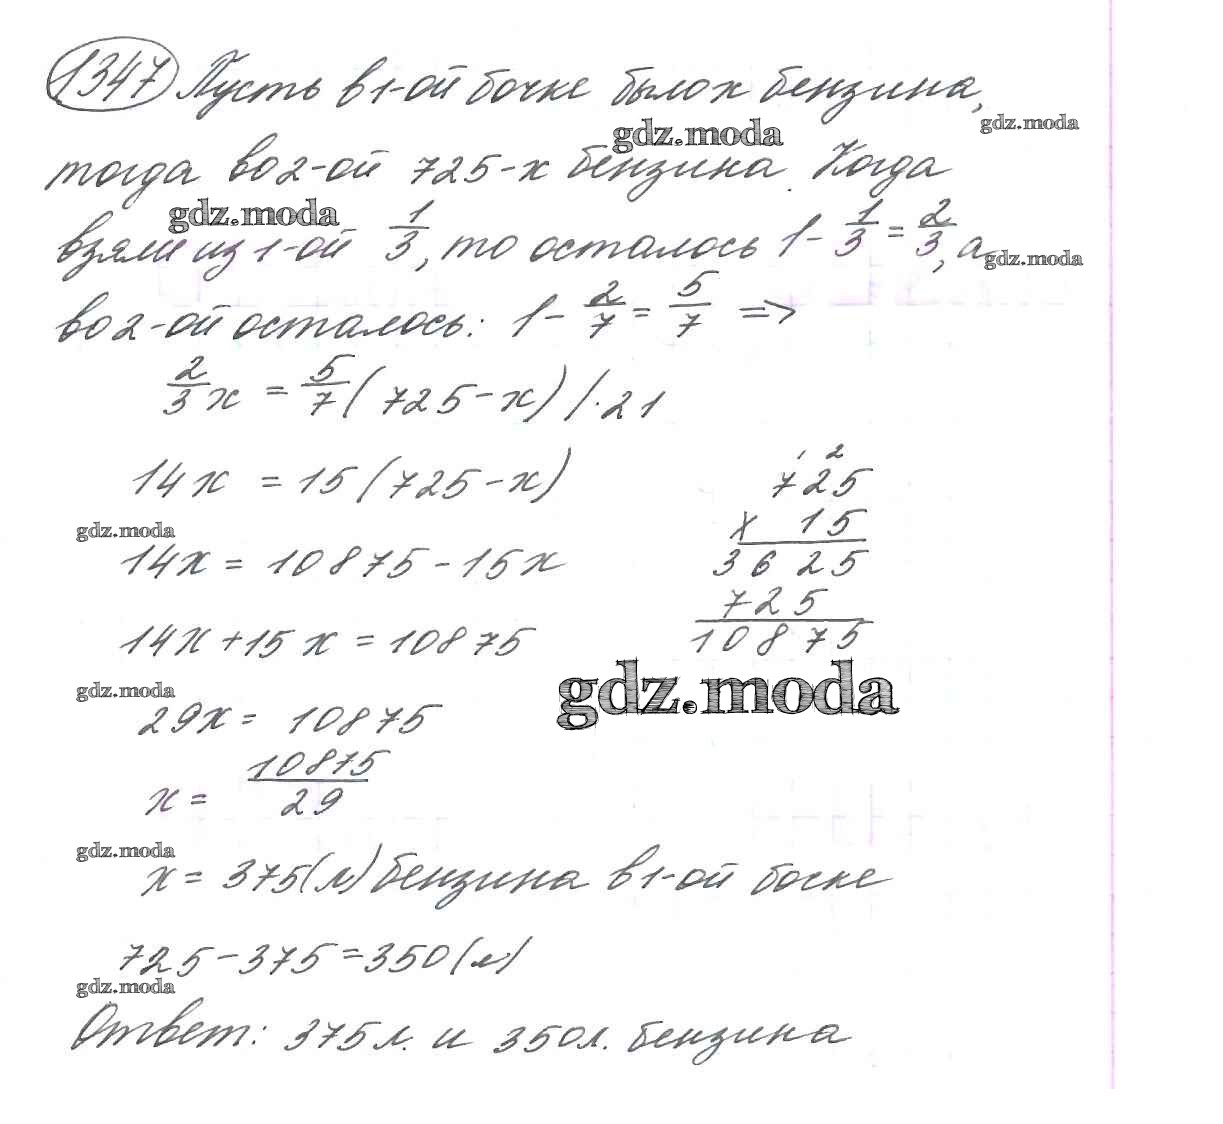 1347 Пусть в 1-ой бочке было x бензина,
gdz.moda
gdz.moda
тогда во 2-ой 725-x бензина. Когда
gdz.moda
взяли из 1-ой 1/3, то осталось 1 - 1/3 = 2/3, а
gdz.moda
во 2-ой осталось: 1 - 2/7 = 5/7 =>
2/3 x = 5/7 (725-x) / ·21
14x = 15(725-x)
gdz.moda
14x = 10875 - 15x
14x + 15x = 10875
1 2
725
x 15
3625
725
10875
gdz.moda
gdz.moda
29x = 10875
x = 10875/29
gdz.moda
x = 375(л) бензина в 1-ой боске
725 - 375 = 350(л)
gdz.moda
Ответ: 375 л. и 350 л. бензина